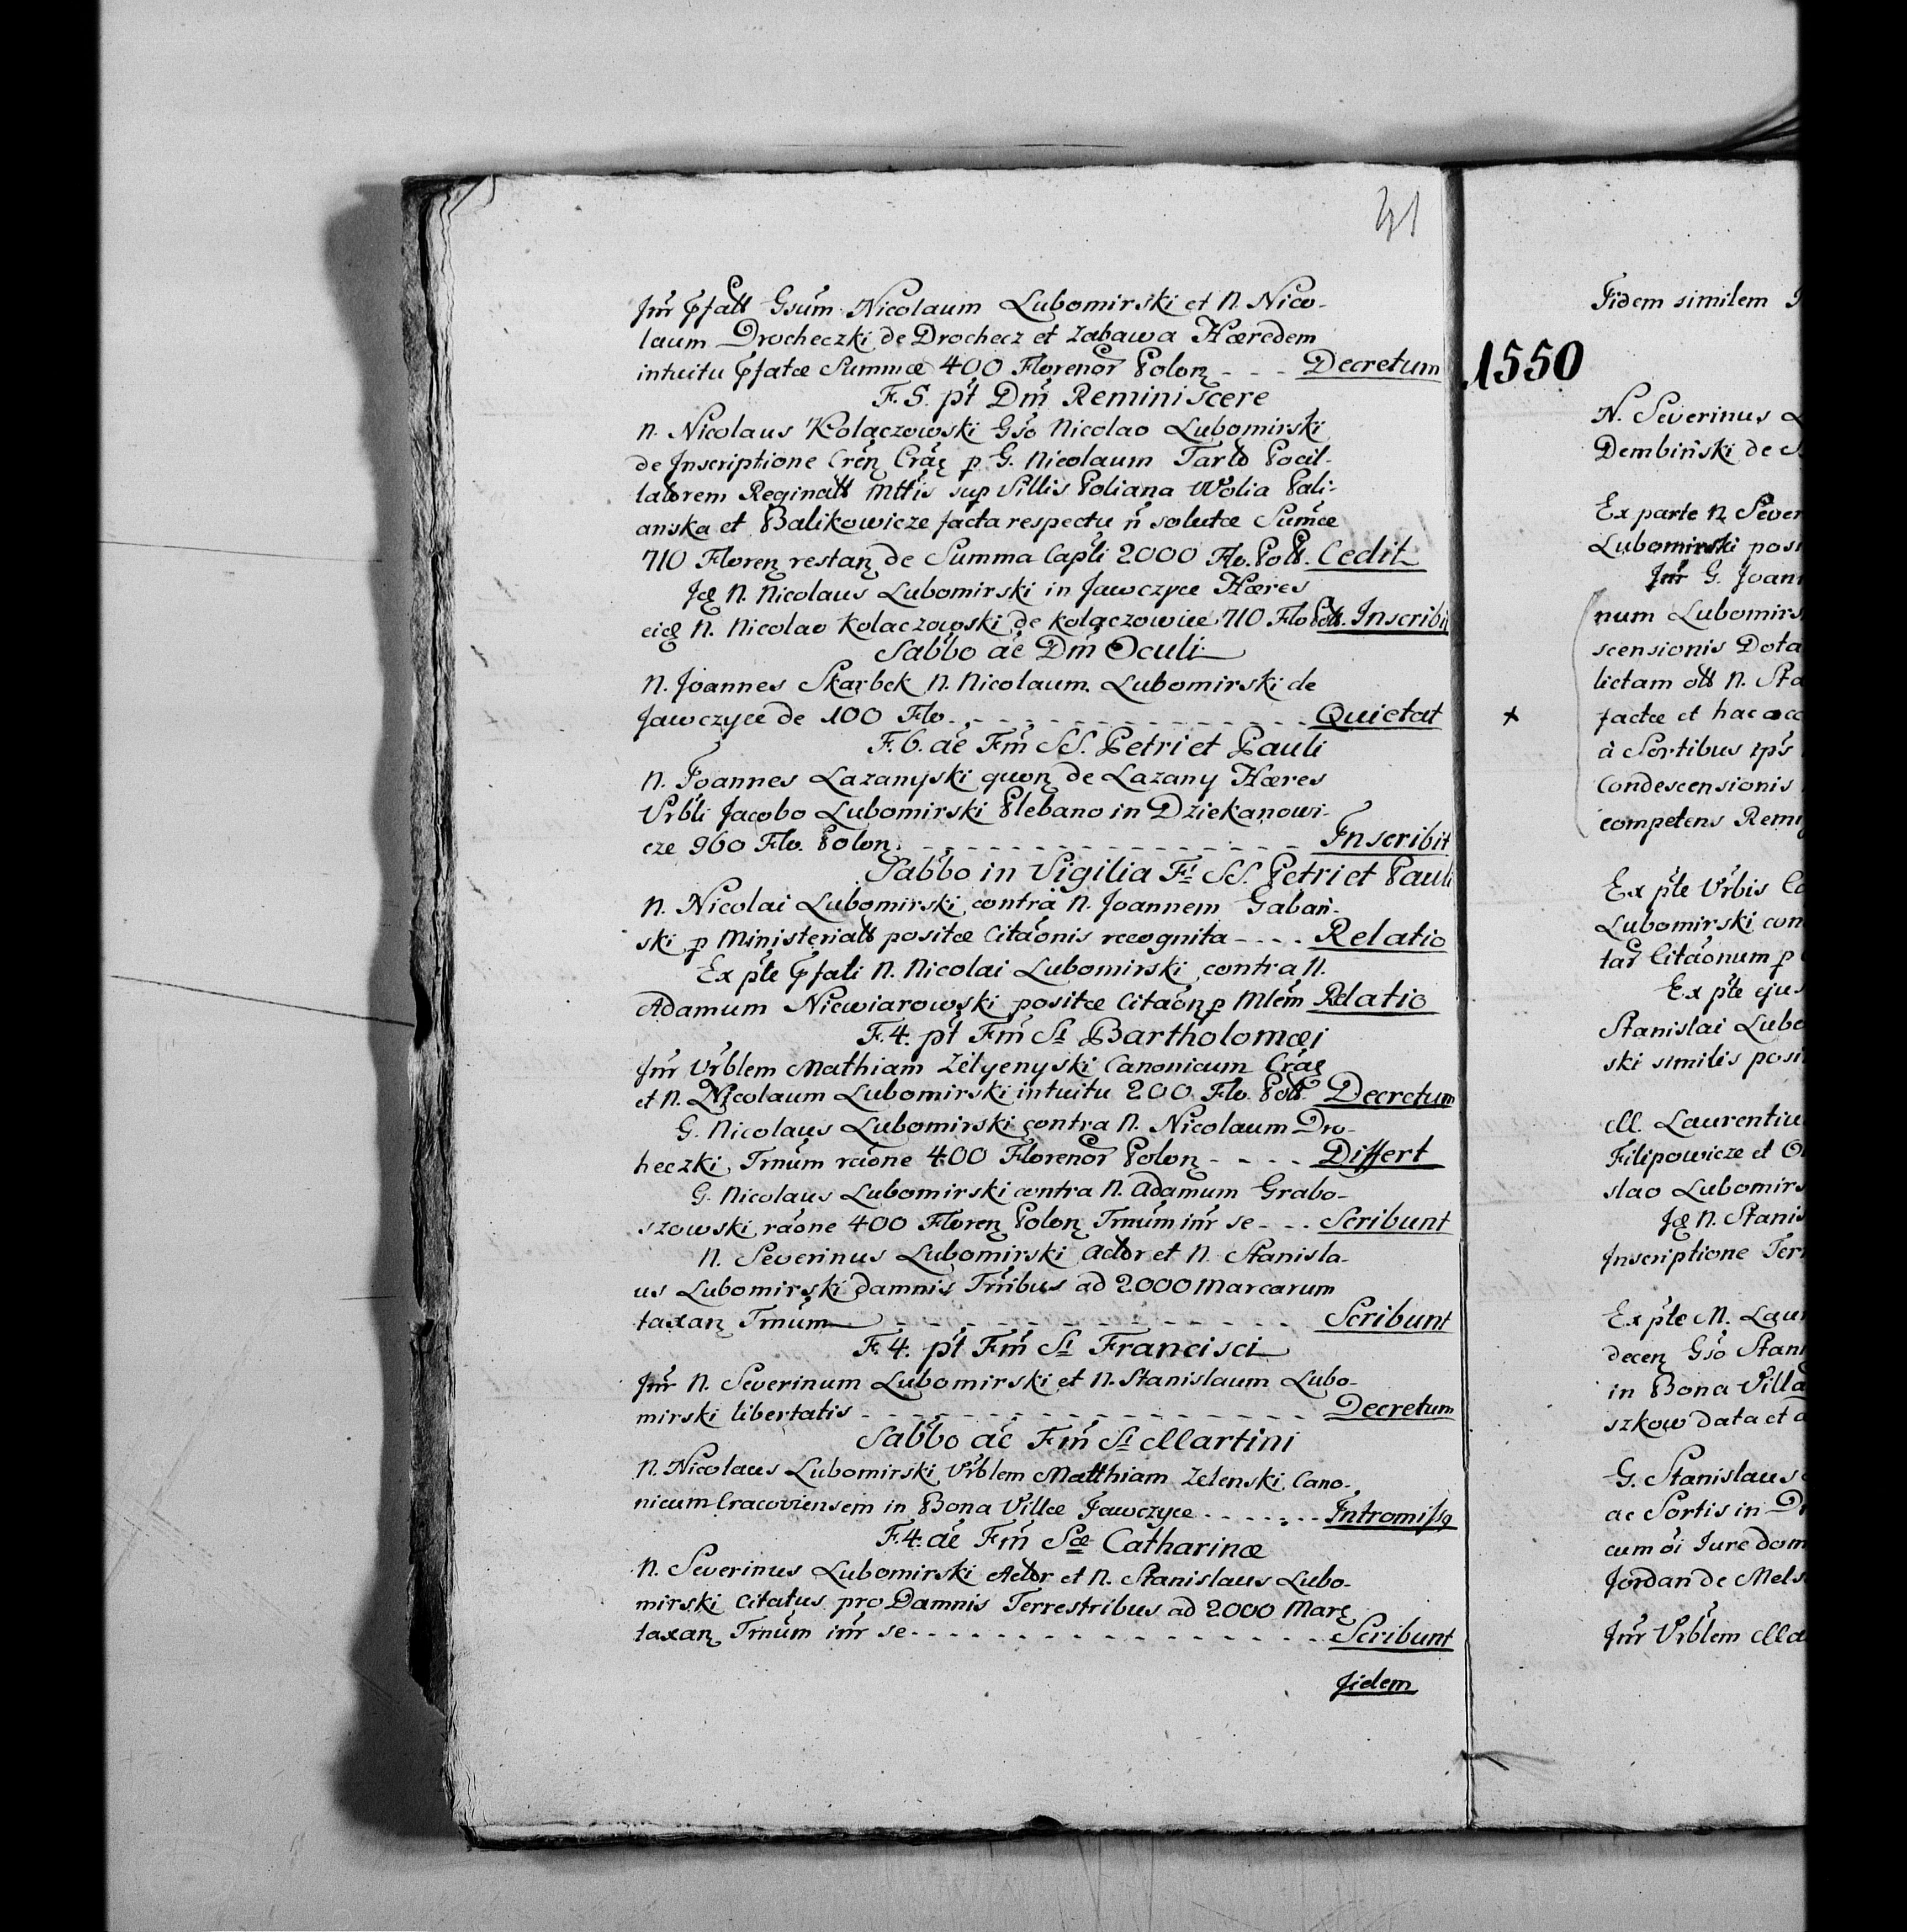 41
Jnr Pfatt Gsum Nicolaum Lubomirski et N. Nico-
laum Drocheczki de Drochecz et Zabawa Hæredem
intuitu Pfatæ Summæ 400 Florenor Polon - - - Decretum
F. S. pt Dm Reminiscere
N. Nicolaus Kolaczowski Gso Nicolao Lubomirski
de Jnscriptione Cren Crac p G. Nicolaum Tarlo Pocil-
latorem Reginatt Mttis sup Villis Poliana Wolia Pali-
anska et Balikowicze facta respectu n solutæ Sumæ
710 Floren restan de Summa Capli 2000 Flo. Polt. Cedit
Jd N. Nicolaus Lubomirski in Jawczyce Hæres
eid N. Nicolao Kolaczowski de Kolaczowice 710 Flo Polt. Inscribit
Sabbo ae Dm Oculi
N. Joannes Skarbek N. Nicolaum Lubomirski de
Jawczyce de 100 Flo. - - - Quietat
F. 6. ae Fm SS. Petri et Pauli
N. Joannes Lazanyski quon de Lazany Hæres
Vrbli Jacobo Lubomirski Plebano in Dziekanowi-
cze 960 Flo. Polon. - - - Inscribit
Sabbo in Vigilia Fi SS. Petri et Pauli
N. Nicolai Lubomirski contra N. Joannem Gaban-
ski p Ministerialt positæ Citaonis recognita - - - . Relatio
Ex pte Pfati N. Nicolai Lubomirski contra N.
Adamum Niewiarowski positæ Citaon p Mlem Relatio
F. 4. pt Fm Si Bartholomæi
Jnr Vrblem Mathiam Zelyenyski Canonicum Crac
et N. Nicolaum Lubomirski intuitu 200 Flo. Polt. Decretum
G. Nicolaus Lubomirski contra N. Nicolaum Dro-
heczki Trnum raone 400 Florenor Polon - - - - Differt
G. Nicolaus Lubomirski contra N. Adamum Grabo-
szowski raone 400 Floren Polon Trnum inr se - - - Scribunt
N. Severinus Lubomirski Actor et N. Stanisla-
us Lubomirski Damnis Trribus ad 2000 Marcarum
taxan Trnum - - - Scribunt
F. 4. pt Fm Si Francisci
Jnr N. Severinum Lubomirski et N. Stanislaum Lubo-
mirski libertatis - - - Decretum
Sabbo ae Fm Si Martini
N. Nicolaus Lubomirski Vrblem Matthiam Zelenski Cano-
nicum Cracoviensem in Bona Villæ Jawczyce - - - Intromiss
F. 4. ae Fm Sæ Catharinæ
N. Severinus Lubomirski Actor et N. Stanislaus Lubo-
mirski Citatus pro Damnis Terrestribus ad 2000 Marc
taxan Trnum inr se - - - Scribunt
Jidem
Fidem similem
1550
N. Severinus
Dembinski de
Ex parte N. Sever
Lubomirski posi
Jnr G. Joan
num Lubomirs
scensionis Dota
lictam ott N. Sta
factæ et hac occ
à Sortibus ips
Condescensionis
competens Remi
Ex pte Vrbis
Lubomirski con
tar Citaonum p
Ex pte eju
Stanislai Lubo
ski similis posi
M. Laurentiu
Filipowicze et
slao Lubomirs
Jd N. Stanis
Jnscriptione Terr
Ex pte M. Laur
decen Gso Stan
in Bona Villa
szkow data et
G. Stanislaus
ac Sortis in
cum oi Jure dom
Jordan de Mels
Jnr Vrblem Ma